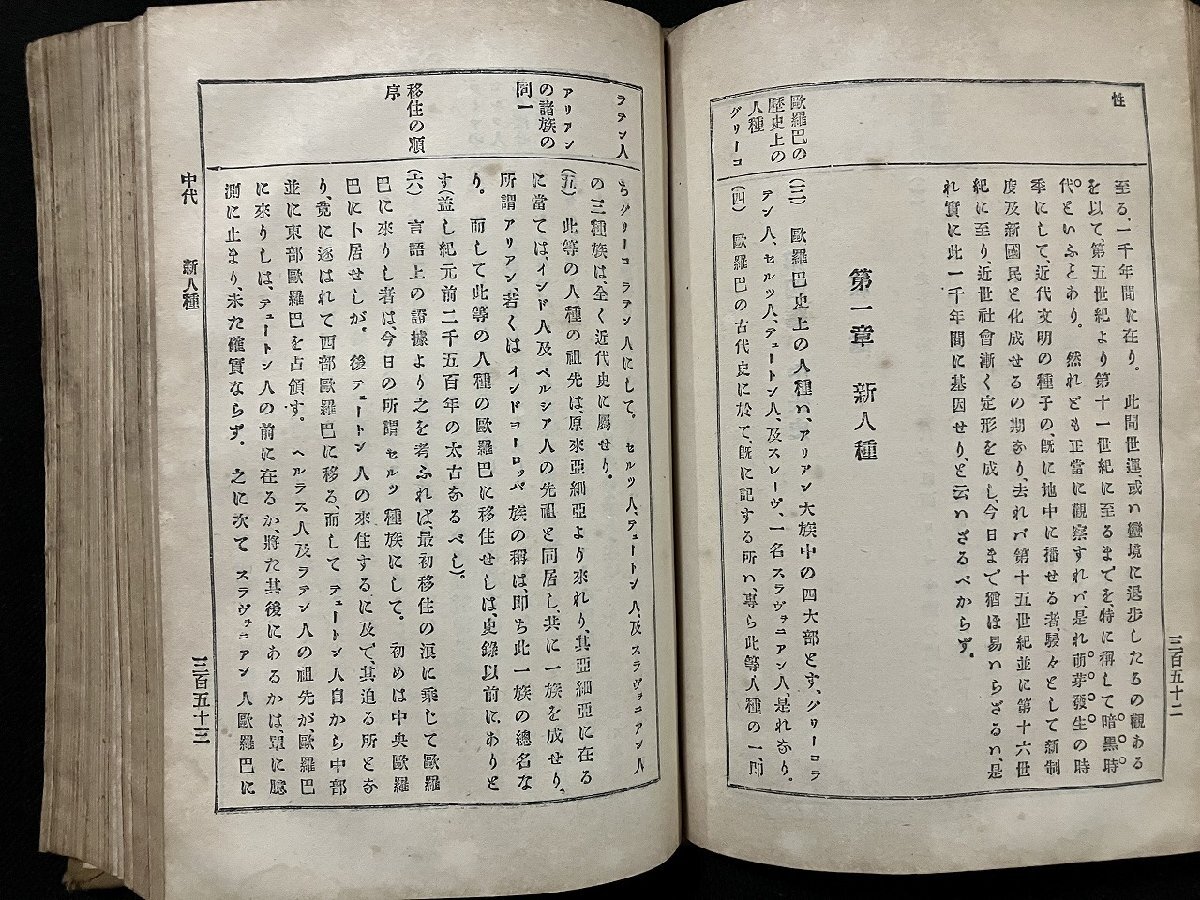 性
至る、一千年間に在り。此間世運、或ハ蠻境に退步したるの觀ある
を以て、第五世紀より第十一世紀に至るまでを、特に稱して暗黑時
代といふとあり。然れども正當に觀察すれバ、是れ萌芽發生の時
季にして、近代文明の種子の、旣に地中に播せる者駸々として新制
度及新國民と化成せるの期なり、去れバ第十五世紀並に第十六世
紀に至り、近世社會漸く定形を成し、今日まで猶ほ易ハらざるハ、是
れ實に此一千年間に基因せり、と云ハざるべからず。
第一章 新人種
歐羅巴の
歷史上の
人種
(三) 歐羅巴史上の人種ハ、アリアン大族中の四大部とす、グリーコラ
テン人、セルツ人、テュートン人、及スレーヴ、一名スラヴォニアン人、是れなり。
グリーコ
(四) 歐羅巴の古代史に於て、旣に記する所ハ、專ら此等人種の一
三百五十二
ラテン人
ちグリーコラテン人にして。セルツ人、テュートン人、及スラヴォニアン人
の三種族は、全く近代史に屬せり。
アリアン
の諸族の
同一
(五) 此等の人種の祖先は原來亞細亞より來れり、其亞細亞に在る
に當ては、インド人及ペルシア人の先祖と同居し、共に一族を成せり、
所謂アリアン、若くはインドヨーロッパ族の稱は、卽ち此一族の總名な
り。而して此等の人種の歐羅巴に移住せしは、史錄以前に、ありと
す(蓋し紀元前二千五百年の太古なるべし)。
移住の順
序
(六) 言語上の證據より之を考ふれば、最初移住の濵に乘じて歐羅
巴に來りし者は、今日の所謂セルツ種族にして。初めは中央歐羅
巴に卜居せしが。後テュートン人の來住する、に及て、其迫る所とな
り、竟に逐はれて西部歐羅巴に移る、而してテュートン人自から中部
並に東部歐羅巴を占領す。ヘルラス人及ラテン人の祖先が、歐羅巴
に來りしは、テュートン人の前に在るか、將た其後にあるかは、單に臆
測に止まり、未た確實ならず。之に次てスラヴォニアン人歐羅巴に
中代 新人種
三百五十三